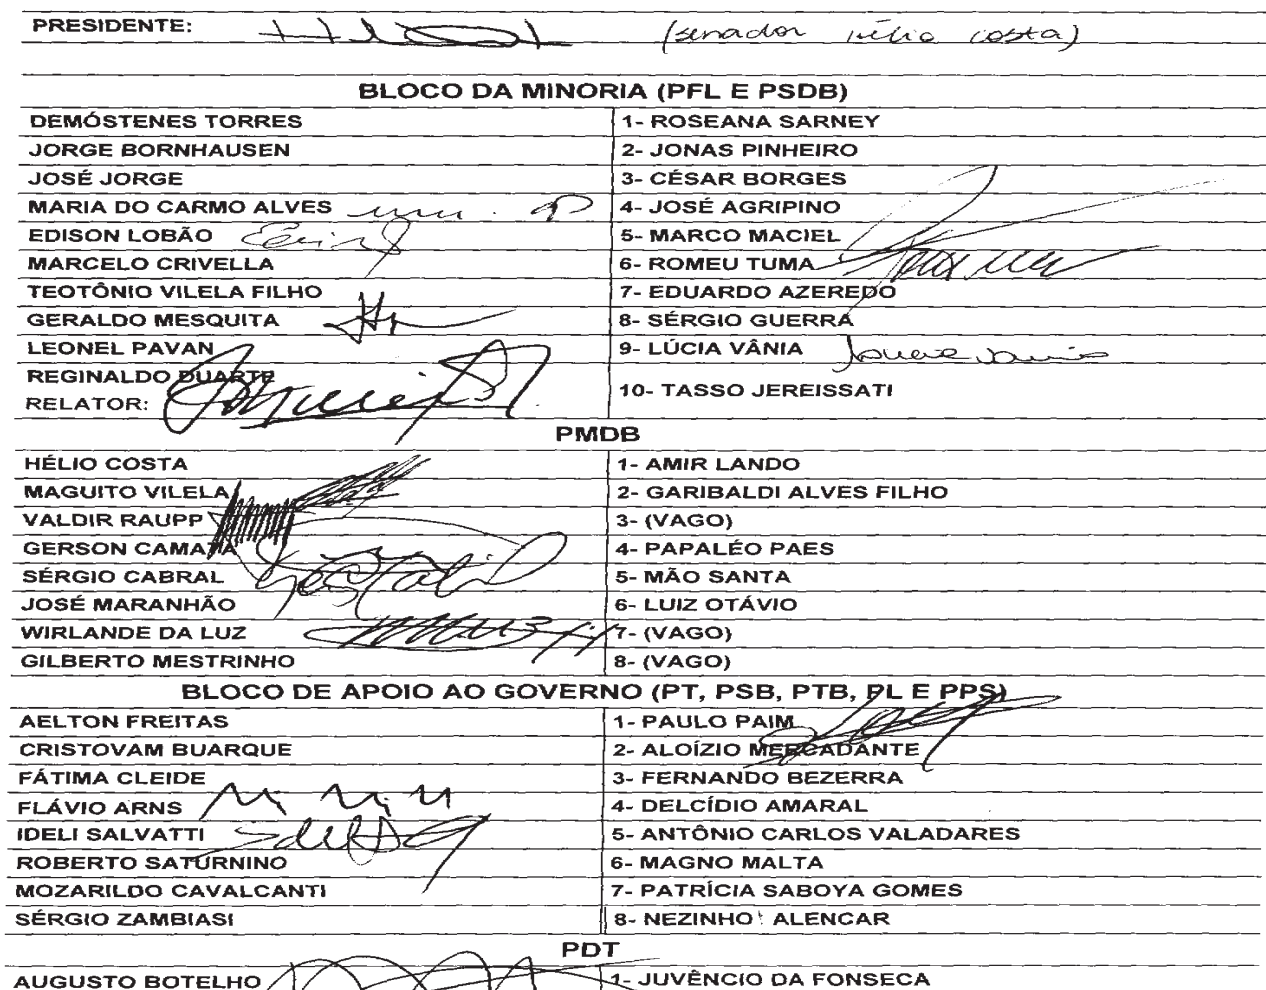 PRESIDENTE: (senador Hélio Costa)
BLOCO DA MINORIA (PFL E PSDB)
DEMÓSTENES TORRES 1- ROSEANA SARNEY
JORGE BORNHAUSEN 2- JONAS PINHEIRO
JOSÉ JORGE 3- CÉSAR BORGES
MARIA DO CARMO ALVES 4- JOSÉ AGRIPINO
EDISON LOBÃO 5- MARCO MACIEL
MARCELO CRIVELLA 6- ROMEU TUMA
TEOTÔNIO VILELA FILHO 7- EDUARDO AZEREDO
GERALDO MESQUITA 8- SÉRGIO GUERRA
LEONEL PAVAN 9- LÚCIA VÂNIA
REGINALDO DUARTE
RELATOR: 10- TASSO JEREISSATI
PMDB
HÉLIO COSTA 1- AMIR LANDO
MAGUITO VILELA 2- GARIBALDI ALVES FILHO
VALDIR RAUPP 3- (VAGO)
GERSON CAMATA 4- PAPALÉO PAES
SÉRGIO CABRAL 5- MÃO SANTA
JOSÉ MARANHÃO 6- LUIZ OTÁVIO
WIRLANDE DA LUZ 7- (VAGO)
GILBERTO MESTRINHO 8- (VAGO)
BLOCO DE APOIO AO GOVERNO (PT, PSB, PTB, PL E PPS)
AELTON FREITAS 1- PAULO PAIM
CRISTOVAM BUARQUE 2- ALOÍZIO MERCADANTE
FÁTIMA CLEIDE 3- FERNANDO BEZERRA
FLÁVIO ARNS 4- DELCÍDIO AMARAL
IDELI SALVATTI 5- ANTÔNIO CARLOS VALADARES
ROBERTO SATURNINO 6- MAGNO MALTA
MOZARILDO CAVALCANTI 7- PATRÍCIA SABOYA GOMES
SÉRGIO ZAMBIASI 8- NEZINHO ALENCAR
PDT
AUGUSTO BOTELHO 1- JUVÊNCIO DA FONSECA